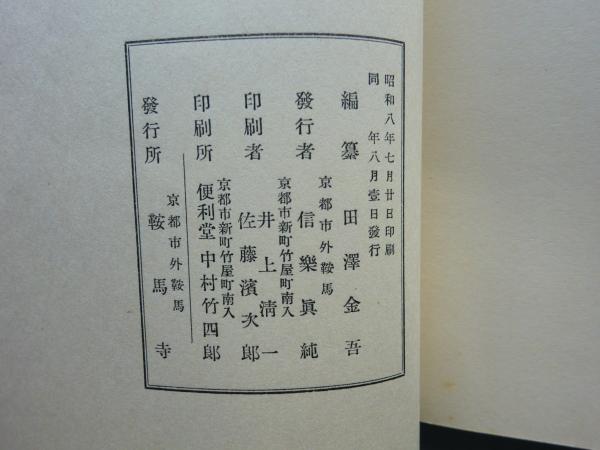 昭和八年七月廿日印刷
同　年八月壹日發行
編纂　田澤金吾
京都市外鞍馬
發行者　信樂眞純
京都市新町竹屋町南入
井上清一
印刷者　佐藤濱次郎
京都市新町竹屋町南入
印刷所　便利堂 中村竹四郎
京都市外鞍馬
發行所　鞍馬寺